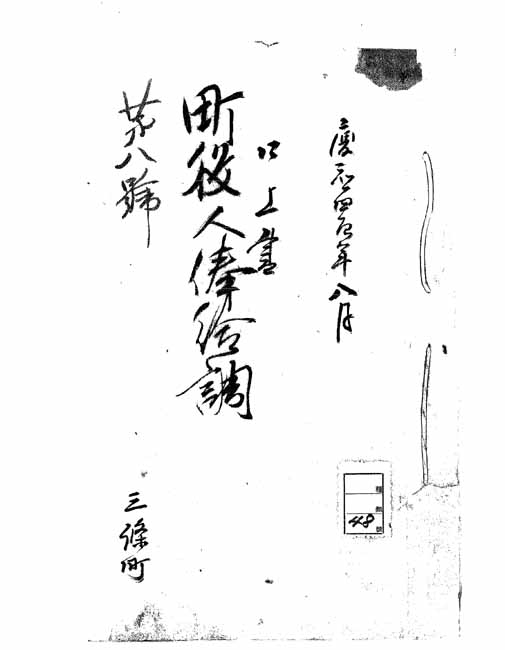 慶應四辰年八月
口上書
町役人俸給調
第八號
三條町
種類
號
48